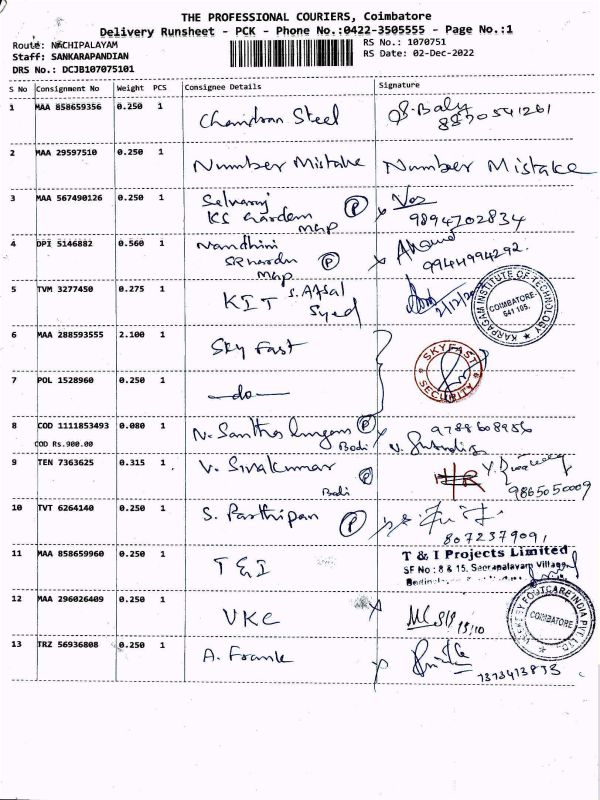 THE PROFESSIONAL COURIERS, Coimbatore
Delivery Runsheet - PCK - Phone No.:0422-3505555 - Page No.:1
Route: NACHIPALAYAM
RS No.: 1070751
Staff: SANKARAPANDIAN
RS Date: 02-Dec-2022
DRS No.: DCJB107075101
S No Consignment No Weight PCS Consignee Details Signature
1 MAA 858659356 0.250 1 Chandran Steel
2 MAA 29597510 0.250 1 Number Mistake Number Mistake
3 MAA 567490126 0.250 1 Selvaraj P
KS Garden 9894702834
map
4 DPI 5146882 0.560 1 Nandhini Anand
P 9944994292
map
5 TVM 3277450 0.275 1 KIT S. Afsal
Syed
KARPAGAM INSTITUTE OF TECHNOLOGY
COIMBATORE-
641 105.
6 MAA 288593555 2.100 1 Sky Fast
SKYFAST
SECURITY
7 POL 1528960 0.250 1 -do-
8 COD 1111853493 0.080 1 P 9788608956
COD Rs.900.00
9 TEN 7363625 0.315 1 V. Sivakumar P HR
9865050009
10 TVT 6264140 0.250 1 S. Parthipan P
8072379091
11 MAA 858659960 0.250 1 T & I
T & I Projects Limited
SF No : 8 & 15. Seerapalayam Village,
12 MAA 296026409 0.250 1 VKC
FOOTCARE INDIA PVT LTD
COIMBATORE
13 TRZ 56936808 0.250 1 A. Frank